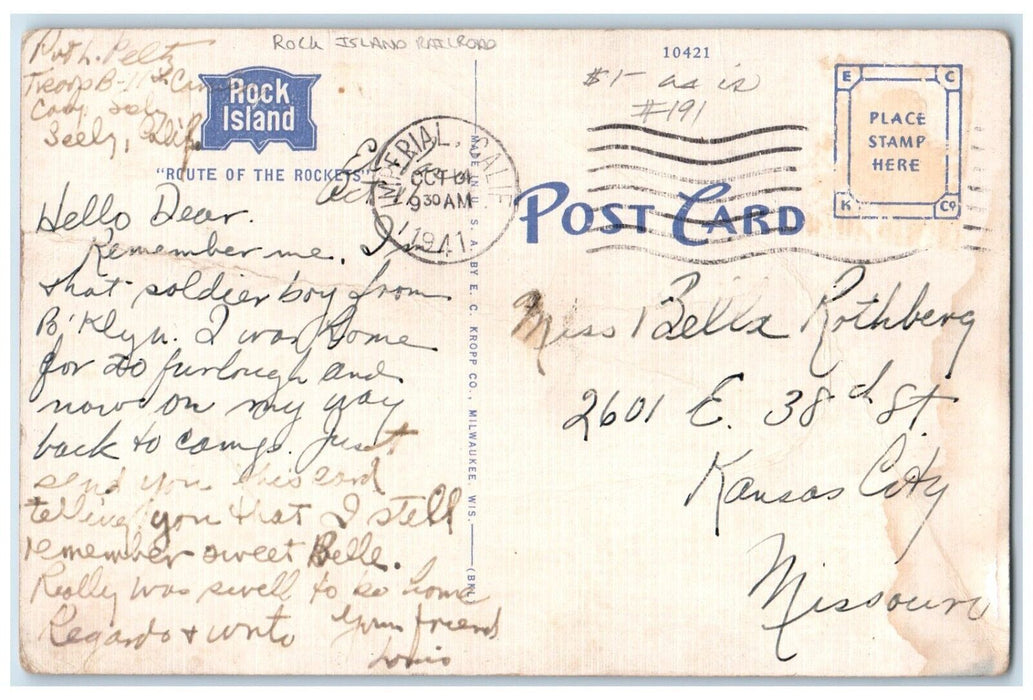 ROCK ISLAND RAILROAD
10421
Pvt L. Peltz
Troop B-11th
Seely, Calif
Rock
Island
"ROUTE OF THE ROCKETS"
Oct
IMPERIAL, CALIF.
OCT
9 30 AM
1941
$1- as is
#191
E C
K Co
PLACE
STAMP
HERE
POST CARD
MADE IN U. S. A. BY E. C. KROPP CO., MILWAUKEE, WIS.
Hello Dear.
Remember me. I'm
that soldier boy from
B'Klyn. I was home
for 20 furlough and
now on my way
back to camp. Just
send you this card
telling you that I still
remember sweet Belle.
Really was swell to be home
Regards & write
Your friend
Louis
Miss Bella Rothberg
2601 E. 38th St
Kansas City
Missouri